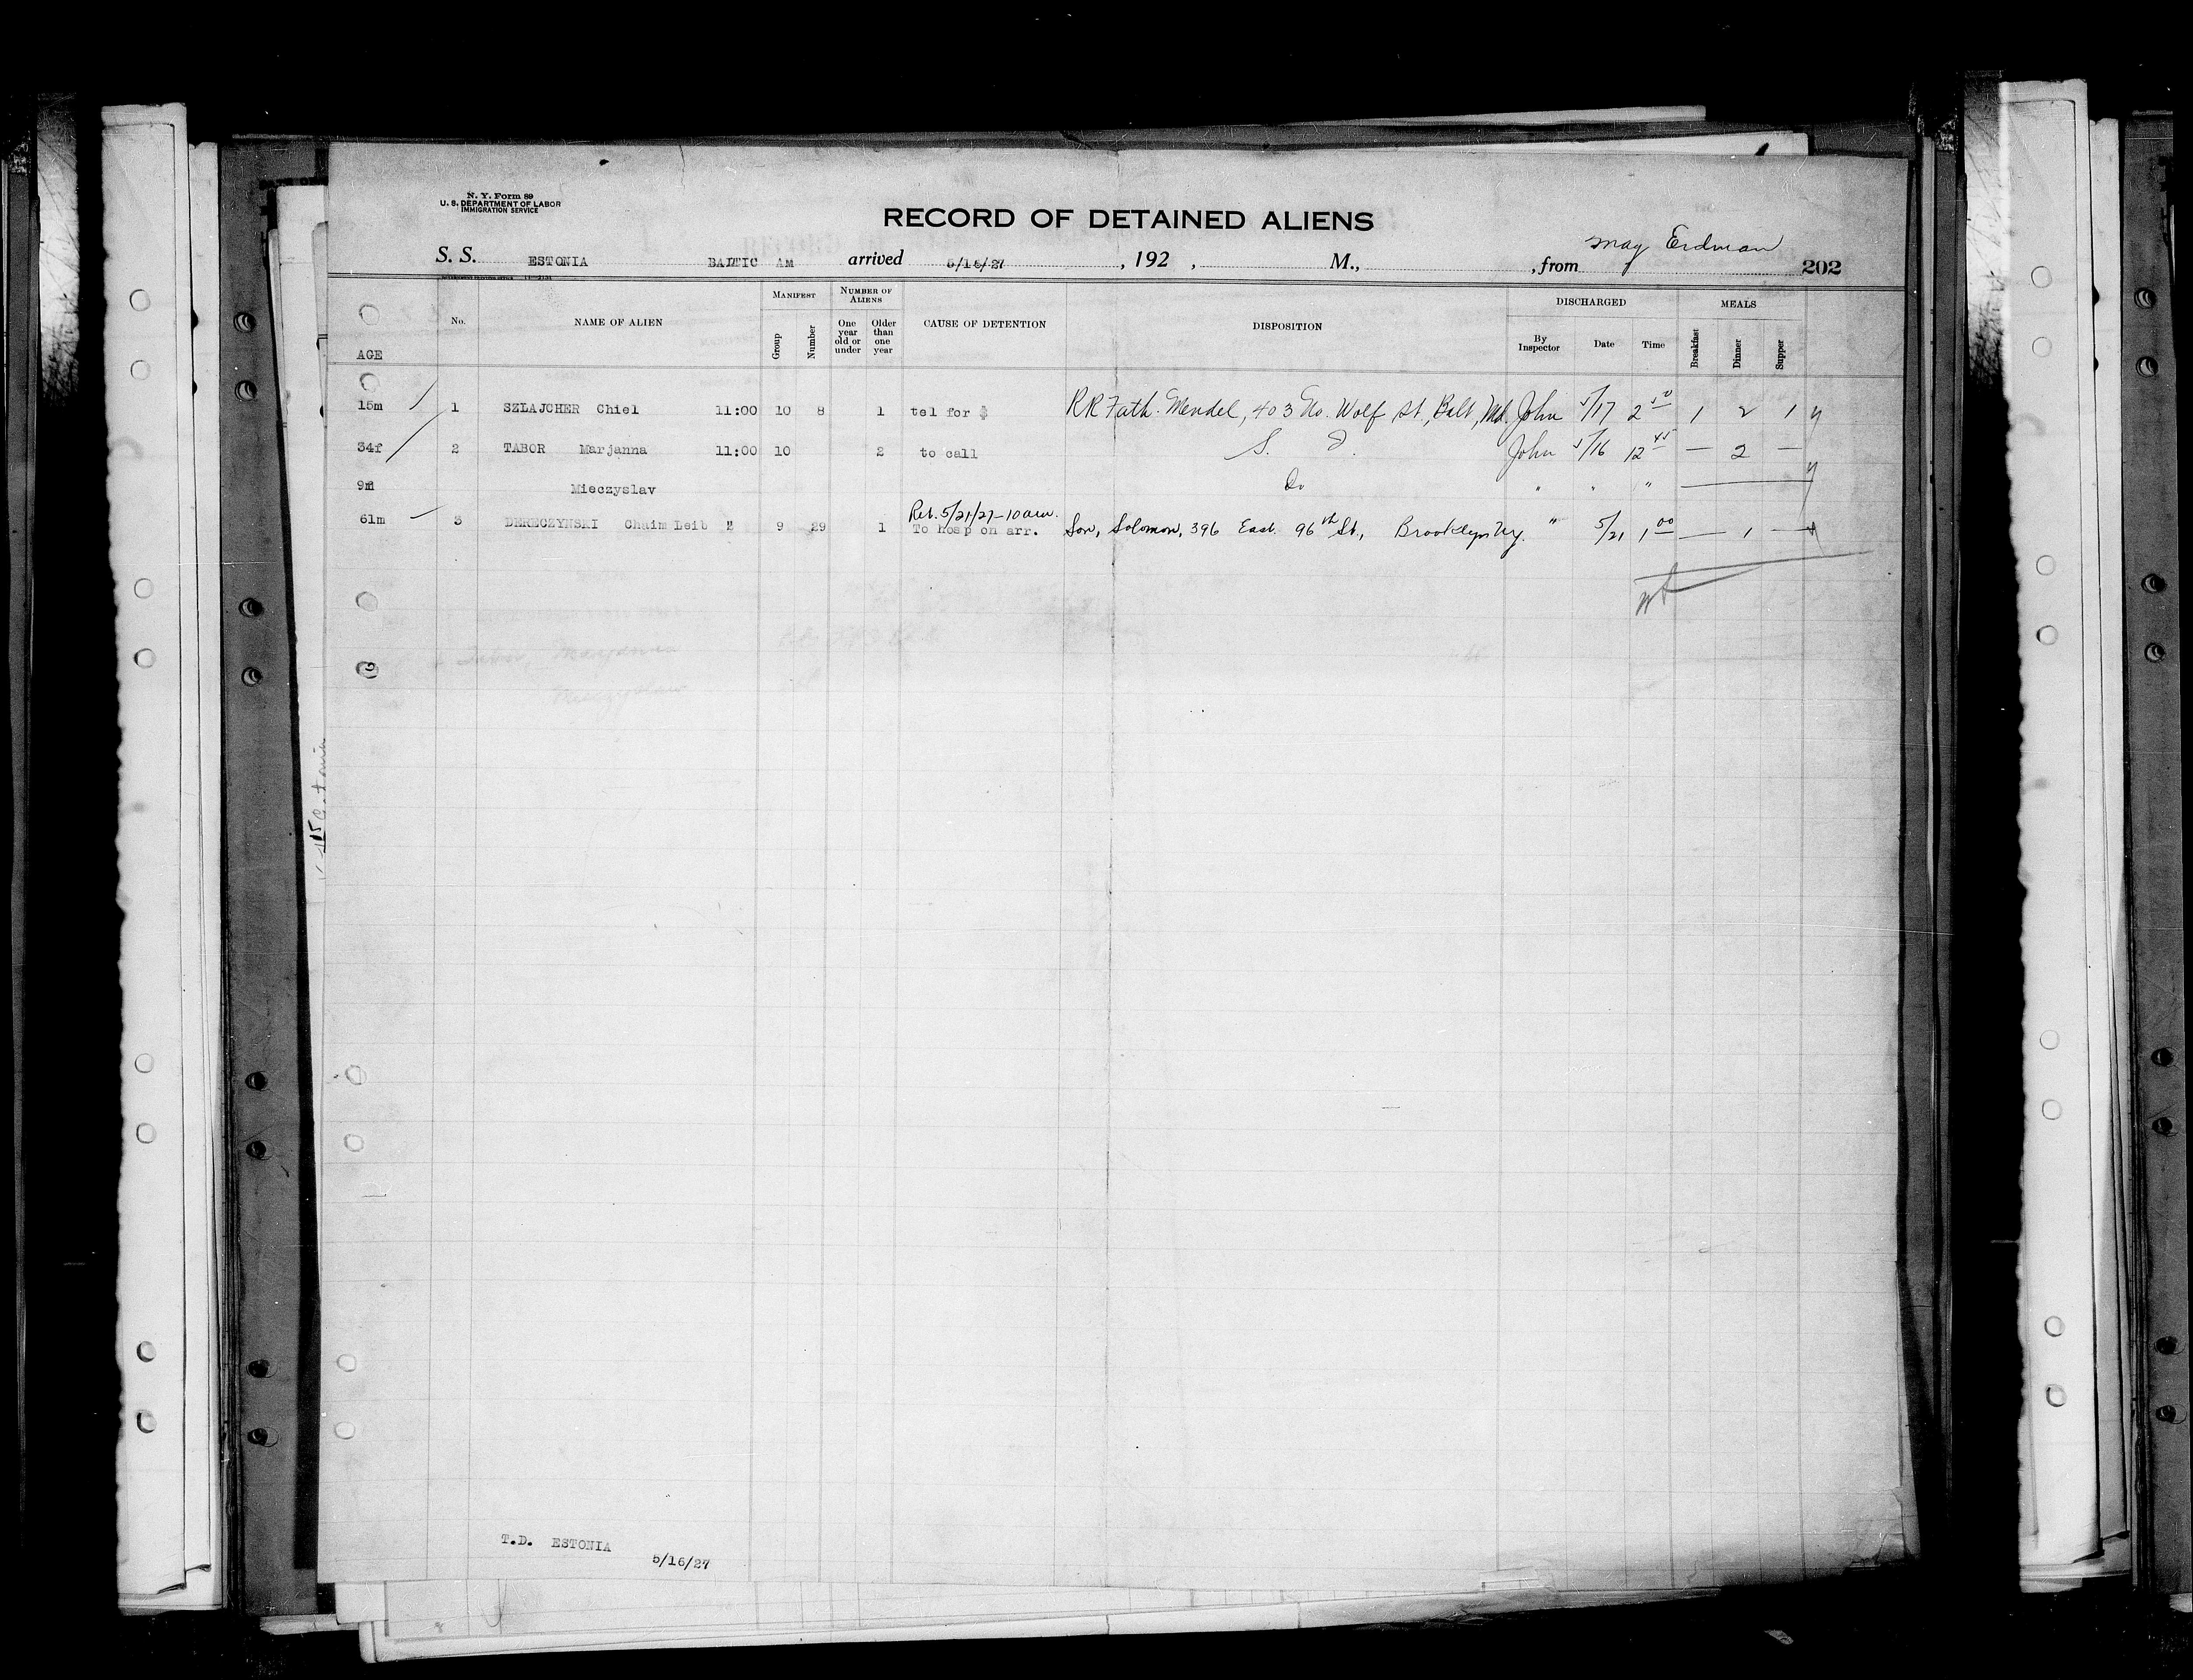 N. Y. Form 89
U. S. DEPARTMENT OF LABOR
IMMIGRATION SERVICE
RECORD OF DETAINED ALIENS
S. S. ESTONIA BALTIC AM arrived 5/16/27, 192 , M., , from May Erdman 202
AGE No. NAME OF ALIEN MANIFEST Group Number NUMBER OF ALIENS One year old or under Older than one year CAUSE OF DETENTION DISPOSITION DISCHARGED By Inspector Date Time MEALS Breakfast Dinner Supper
15m 1 SZLAJCHER Chiel 11:00 10 8 1 tel for $ RR Fath. Mendel, 403 No. Wolf St, Balt, Md. John 5/17 2 50 1 2 1 y
34f 2 TABOR Marjanna 11:00 10 2 to call S. D. John 5/16 12 45 — 2 —
9m Mieczyslav Do " " " y
Ret. 5/21/27-10am.
61m 3 DERECZYNSKI Chaim Leib " 9 29 1 To hosp on arr. Son, Solomon, 396 East 96th St., Brooklyn Ny. " 5/21 1 00 — 1 —
Tabor, Marjanna
Mieczyslaw
T.D. ESTONIA 5/16/27